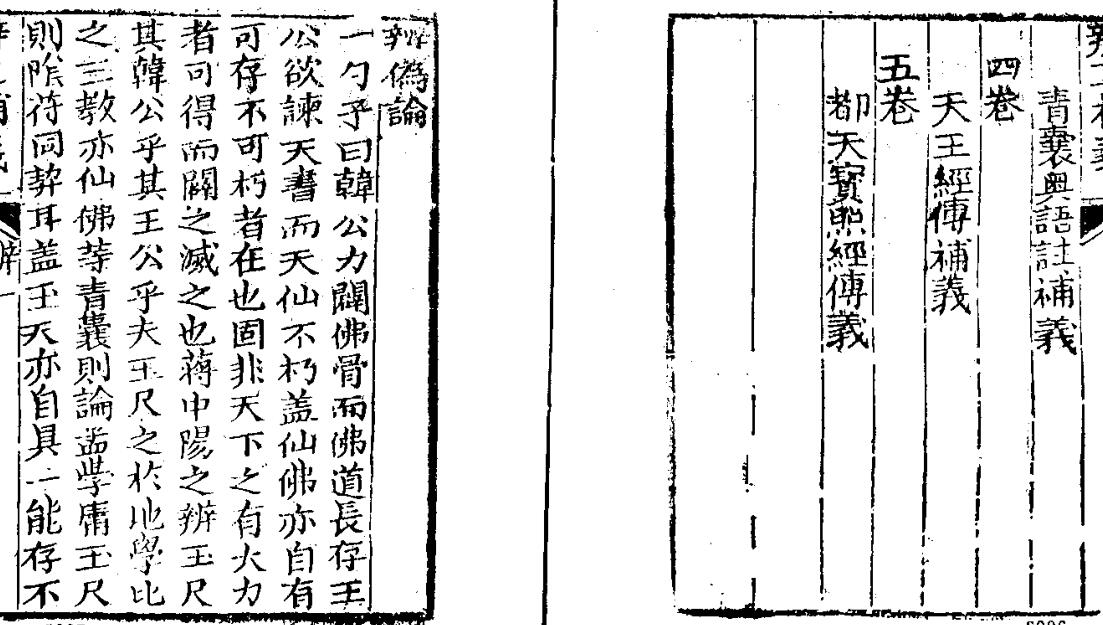 青囊奧語註補義
四卷
天王經傳補義
五卷
都天寶照經傳義
辨偽論
一勺子曰韓公力闢佛骨而佛道長存王
公欲諫天書而天仙不朽盖仙佛亦自有
可存不可朽者在也固非天下之有大力
者可得而闢之滅之也蔣中陽之辨玉尺
其韓公乎其王公乎夫玉尺之於地學比
之三教亦仙佛等青囊則論孟學庸玉尺
則陰符同契耳盖玉天亦自具一能存不